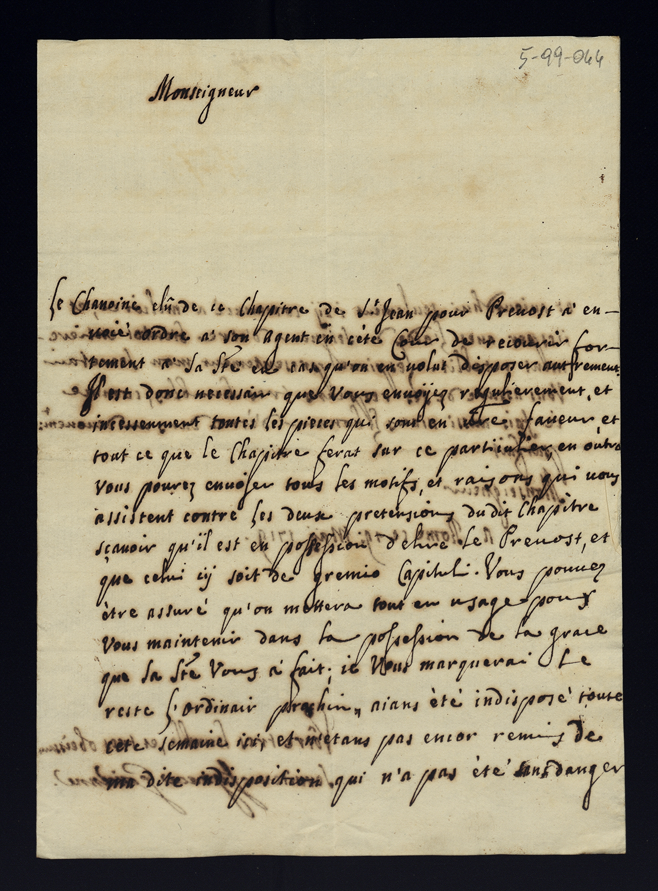 5-99-044
Monseigneur
Le Chanoine elû de ce Chapitre de St Jean pour Prevost a' en-
voié ordre a' son agent en céte Cour de recourir for-
tement a' Sa Sté en cas qu'on en volut disposer autrement.
Il est donc necessair que Vous envoyez regulierement, et
incessenment toutes les pieces qui sont en vtre faveur, et
tout ce que le Chapitre ferat sur ce particulier, en outre
Vous pourez envoyer tous les motifs, et raisons qui vous
assistent contre les deux pretensions du dit Chapitre
sçavoir qu'il est en possession d'elire le Prevost, et
que celui cy soit de gremio Capituli. Vous pouvez
étre assuré qu'on mettera tout en usage pour
Vous maintenir dans la possession de la grace
que Sa Sté Vous a' fait; ie Vous marquerai le
reste l'ordinair prochin, aians èté indisposé toute
cete semaine ici, et n'etans pas encor remis de
ma dite indisposition qui n'a pas èté sans danger